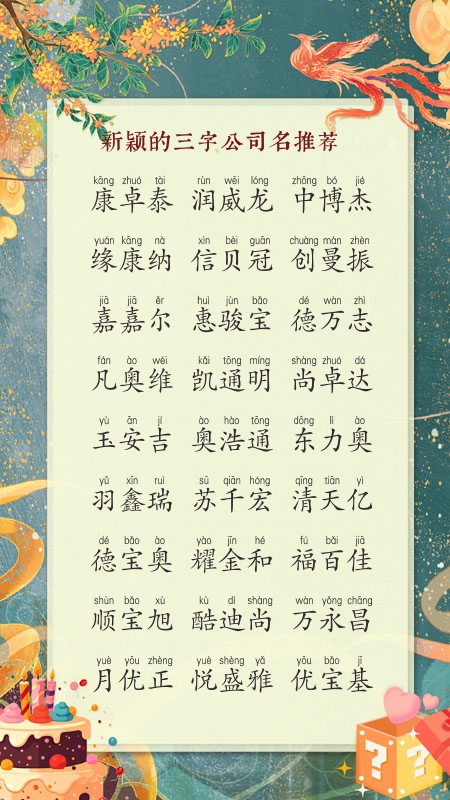 新颖的三字公司名推荐
kāng zhuó tài rùn wēi lóng zhōng bó jié
康卓泰 润威龙 中博杰
yuán kāng nà xìn bèi guān chuàng màn zhèn
缘康纳 信贝冠 创曼振
jiā jiā ěr huì jùn bǎo dé wàn zhì
嘉嘉尔 惠骏宝 德万志
fán ào wéi kǎi tōng míng shàng zhuó dá
凡奥维 凯通明 尚卓达
yù ān jí ào hào tōng dōng lì ào
玉安吉 奥浩通 东力奥
yǔ xīn ruì sū qiān hóng qīng tiān yì
羽鑫瑞 苏千宏 清天亿
dé bǎo ào yào jīn hé fú bǎi jiā
德宝奥 耀金和 福百佳
shùn bǎo xù kù dí shàng wàn yǒng chāng
顺宝旭 酷迪尚 万永昌
yuè yōu zhèng yuè shèng yǎ yōu bǎo jī
月优正 悦盛雅 优宝基
? ?